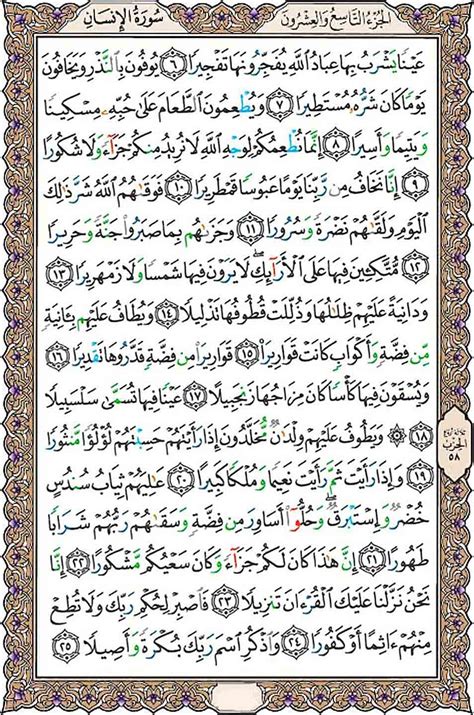 الجُزْءُ التَّاسِعُ وَالعِشْرُونَ
سُورَةُ الإِنْسَانِ
عَيْنًا يَشْرَبُ بِهَا عِبَادُ اللَّهِ يُفَجِّرُونَهَا تَفْجِيرًا ٦ يُوفُونَ بِالنَّذْرِ وَيَخَافُونَ
يَوْمًا كَانَ شَرُّهُۥ مُسْتَطِيرًا ٧ وَيُطْعِمُونَ الطَّعَامَ عَلَىٰ حُبِّهِۦ مِسْكِينًا
وَيَتِيمًا وَأَسِيرًا ٨ إِنَّمَا نُطْعِمُكُمْ لِوَجْهِ اللَّهِ لَا نُرِيدُ مِنكُمْ جَزَآءً وَلَا شُكُورًا
٩ إِنَّا نَخَافُ مِن رَّبِّنَا يَوْمًا عَبُوسًا قَمْطَرِيرًا ١٠ فَوَقَىٰهُمُ اللَّهُ شَرَّ ذَٰلِكَ
الْيَوْمِ وَلَقَّىٰهُمْ نَضْرَةً وَسُرُورًا ١١ وَجَزَىٰهُم بِمَا صَبَرُوا جَنَّةً وَحَرِيرًا
١٢ مُّتَّكِـِٔينَ فِيهَا عَلَى الْأَرَآئِكِ ۖ لَا يَرَوْنَ فِيهَا شَمْسًا وَلَا زَمْهَرِيرًا ١٣
وَدَانِيَةً عَلَيْهِمْ ظِلَٰلُهَا وَذُلِّلَتْ قُطُوفُهَا تَذْلِيلًا ١٤ وَيُطَافُ عَلَيْهِم بِـَٔانِيَةٍ
مِّن فِضَّةٍ وَأَكْوَابٍ كَانَتْ قَوَارِيرَا۠ ١٥ قَوَارِيرَا۟ مِن فِضَّةٍ قَدَّرُوهَا تَقْدِيرًا ١٦
وَيُسْقَوْنَ فِيهَا كَأْسًا كَانَ مِزَاجُهَا زَنجَبِيلًا ١٧ عَيْنًا فِيهَا تُسَمَّىٰ سَلْسَبِيلًا
١٨ ۞ وَيَطُوفُ عَلَيْهِمْ وِلْدَٰنٌ مُّخَلَّدُونَ إِذَا رَأَيْتَهُمْ حَسِبْتَهُمْ لُؤْلُؤًا مَّنثُورًا
١٩ وَإِذَا رَأَيْتَ ثَمَّ رَأَيْتَ نَعِيمًا وَمُلْكًا كَبِيرًا ٢٠ عَٰلِيَهُمْ ثِيَابُ سُندُسٍ
خُضْرٌ وَإِسْتَبْرَقٌ ۖ وَحُلُّوٓا أَسَاوِرَ مِن فِضَّةٍ وَسَقَىٰهُمْ رَبُّهُمْ شَرَابًا
طَهُورًا ٢١ إِنَّ هَٰذَا كَانَ لَكُمْ جَزَآءً وَكَانَ سَعْيُكُم مَّشْكُورًا ٢٢ إِنَّا
نَحْنُ نَزَّلْنَا عَلَيْكَ الْقُرْءَانَ تَنزِيلًا ٢٣ فَاصْبِرْ لِحُكْمِ رَبِّكَ وَلَا تُطِعْ
مِنْهُمْ ءَاثِمًا أَوْ كَفُورًا ٢٤ وَاذْكُرِ اسْمَ رَبِّكَ بُكْرَةً وَأَصِيلًا ٢٥
ثلاثة أرباع
الحزب
٥٨